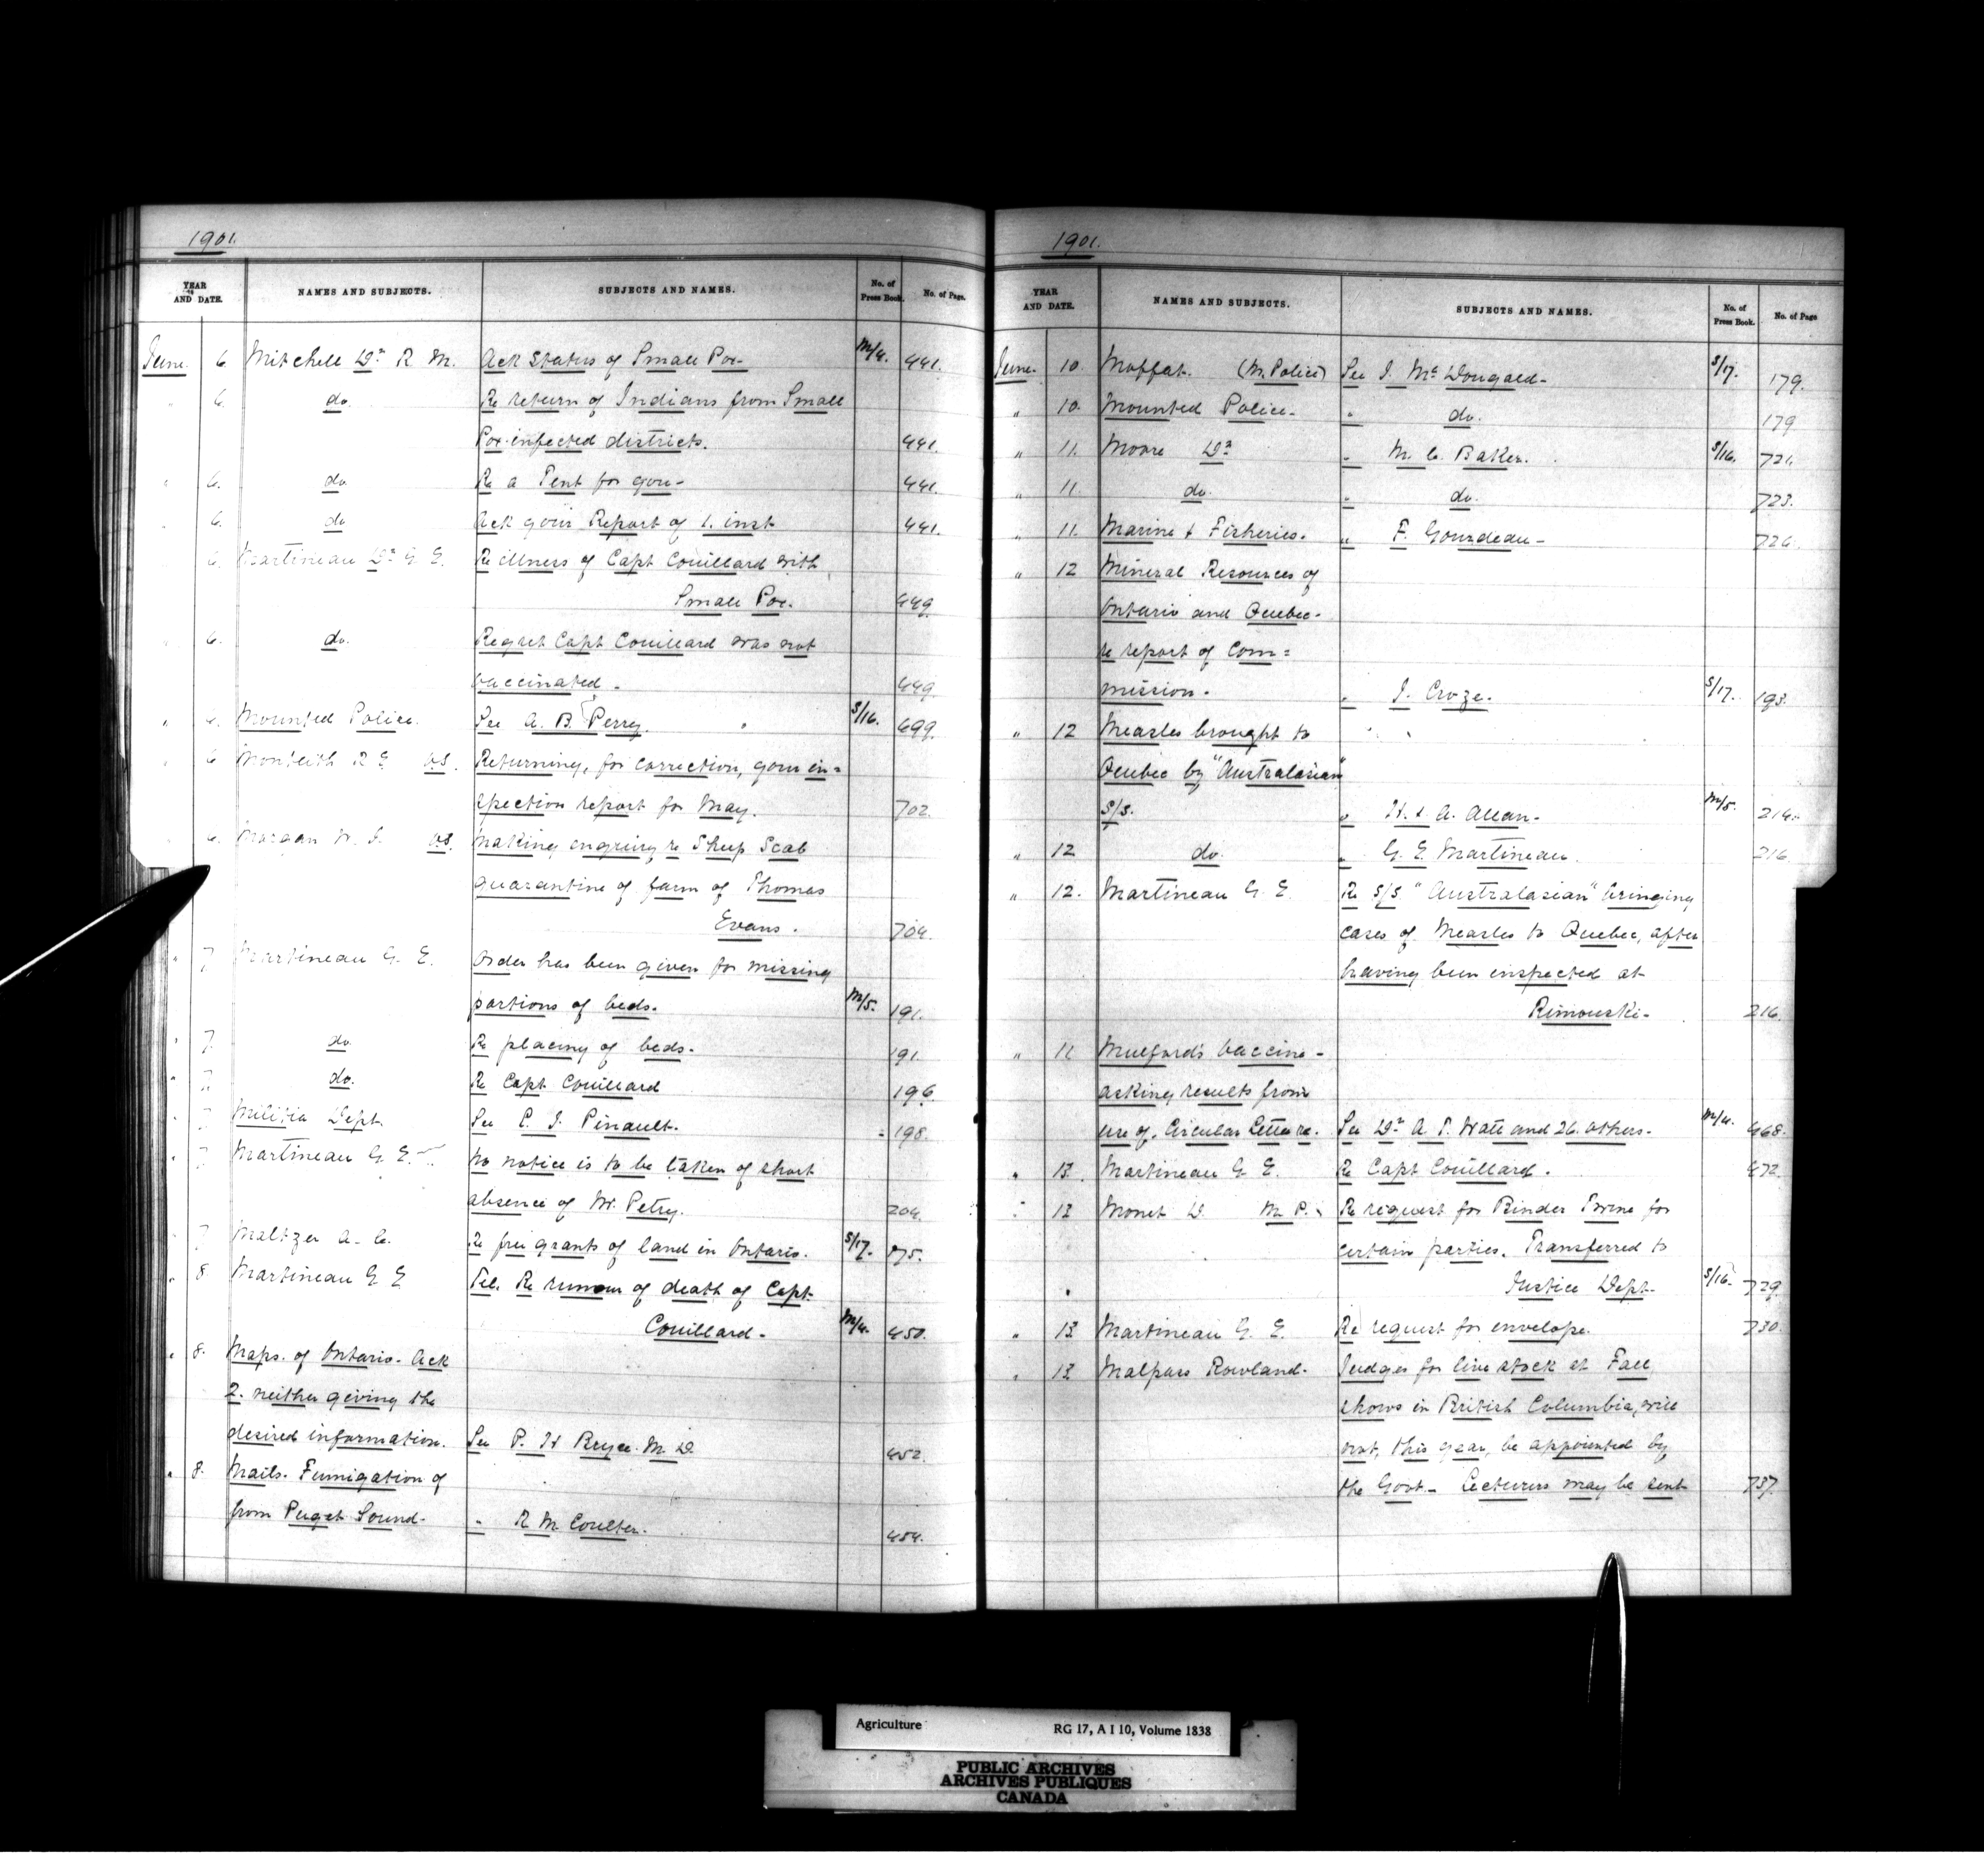 1901.
YEAR AND DATE. NAMES AND SUBJECTS. SUBJECTS AND NAMES. No. of Press Book. No. of Page.
June. 6. Mitchell Dr R. M. Ack Status of Small Pox- M/4. 441.
" 6. do. Re return of Indians from Small
Pox infected districts. 441.
" 6. do Re a Tent for you- 441.
" 6. do Ack your Report of 1. inst 441.
6. Martineau Dr G. E. Re illness of Capt Couillard with
Small Pox. 449.
" 6. do. Regret Capt Couillard was not
vaccinated. 449.
" 6. Mounted Police. See A. B. Perry. S/16. 699.
" 6 Monteith R E V.S. Returning, for correction, your in=
spection report for May. 702.
" 6. Morgan W. J. V.S. Making enquiry re Sheep Scab
quarantine of farm of Thomas
Evans. 704.
" 7 Martineau G. E. Order has been given for missing
portions of beds. M/5. 191.
" 7. do Re placing of beds. 191.
" 7. do. Re Capt Couillard 196.
" 7 Militia Dept. See L. J. Pinault. 198.
" 7 Martineau G. E. No notice is to be taken of short
absence of W. Petry. 204.
" 7 Maltzer A. C. Re free grants of land in Ontario. S/17. 175.
" 8 Martineau G E Tel. Re rumour of death of Capt
Couillard- M/4. 450.
" 8. Maps. of Ontario- Ack
2. neither giving the
desired information. See P. H Bryce. M. D. 452.
" 8. Mails. Fumigation of
from Puget Sound. " R M Coulter. 454.
1901.
YEAR AND DATE. NAMES AND SUBJECTS. SUBJECTS AND NAMES. No. of Press Book. No. of Page
June. 10. Moffat. (M. Police) See J. McDougald- S/17. 179.
" 10. Mounted Police- " do. 179
" 11. Moore Dr " M. C. Baker. S/16. 721.
" 11. do. " do. 723.
" 11. Marine & Fisheries. " F. Gourdeau- 726.
" 12 Mineral Resources of
Ontario and Quebec-
re report of Com=
mission. " J. Croze. S/17. 193.
" 12 Measles brought to
Quebec by "Australasian"
S/S. " H. & A. Allan- M/5. 216.
" 12 do. " G. E. Martineau. 216
" 12. Martineau G. E. Re S/S "Australasian" bringing
cases of Measles to Quebec, after
having been inspected at
Rimouski- 216.
" 11 Mulford's Vaccine-
asking results from
use of. Circular Letter re. See Dr A. T. Watt and 26. others. M/4. 468.
" 13. Martineau G. E. Re Capt Couillard. 472.
" 13 Monet D. M. P. Re request for Binder Twine for
certain parties. Transferred to
Justice Dept. S/16. 729
" 13 Martineau G. E. Re request for envelope. 730.
" 13 Malpass Rowland. Judges for live stock at Fall
shows in British Columbia, will
not, this year, be appointed by
the Govt- Lecturers may be sent 737.
Agriculture RG 17, A I 10, Volume 1838
PUBLIC ARCHIVES
ARCHIVES PUBLIQUES
CANADA